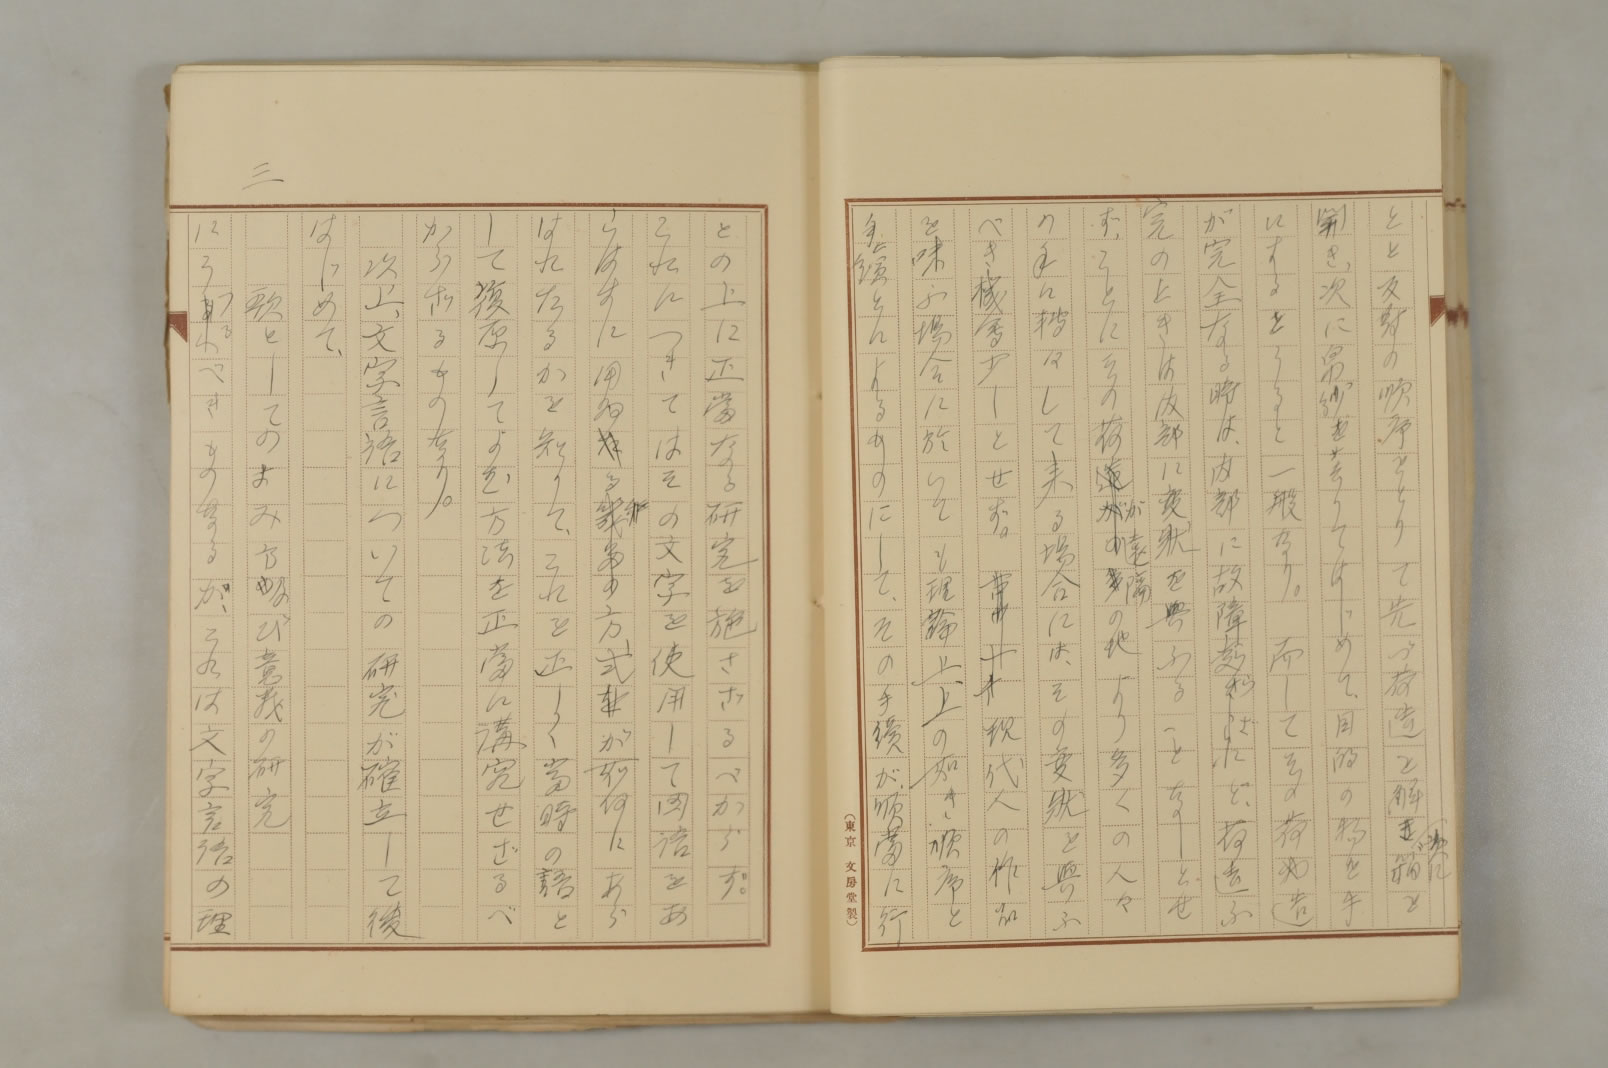 とと反対の順序をとりて先づ荷造を解き次に箱を
開き、次に帛紗をとりてはじめて、目的の物を手
にするをうると一般なり。而してその荷造
が完全なる時は、内部に故障なけれど、荷造不
完のときは内部に変状を与ふることなしとせ
ず、ことにその荷造が遠隔の地より多くの人々
の手に携はして来る場合には、その変状を与ふ
べき機会少しとせず。現代人の作品
を味ふ場合に於いても理論上、上の如き順序と
手続とによるものにして、その手続が順当に行
（東京 文房堂製）
との上に正当なる研究を施さざるべからず。
これにつきてはその文字を使用して国語をあ
らはすに用ゐる方式が如何にあら
はれたるかを知りて、これを正しく当時の語と
して復原してよむ方法を正当に講究せざるべ
からざるものなり。
次上、文字言語についての研究が確立して後
はじめて、
三
歌としてのよみ方及び意義の研究
にうつるべきものなるが、これは文字言語の理